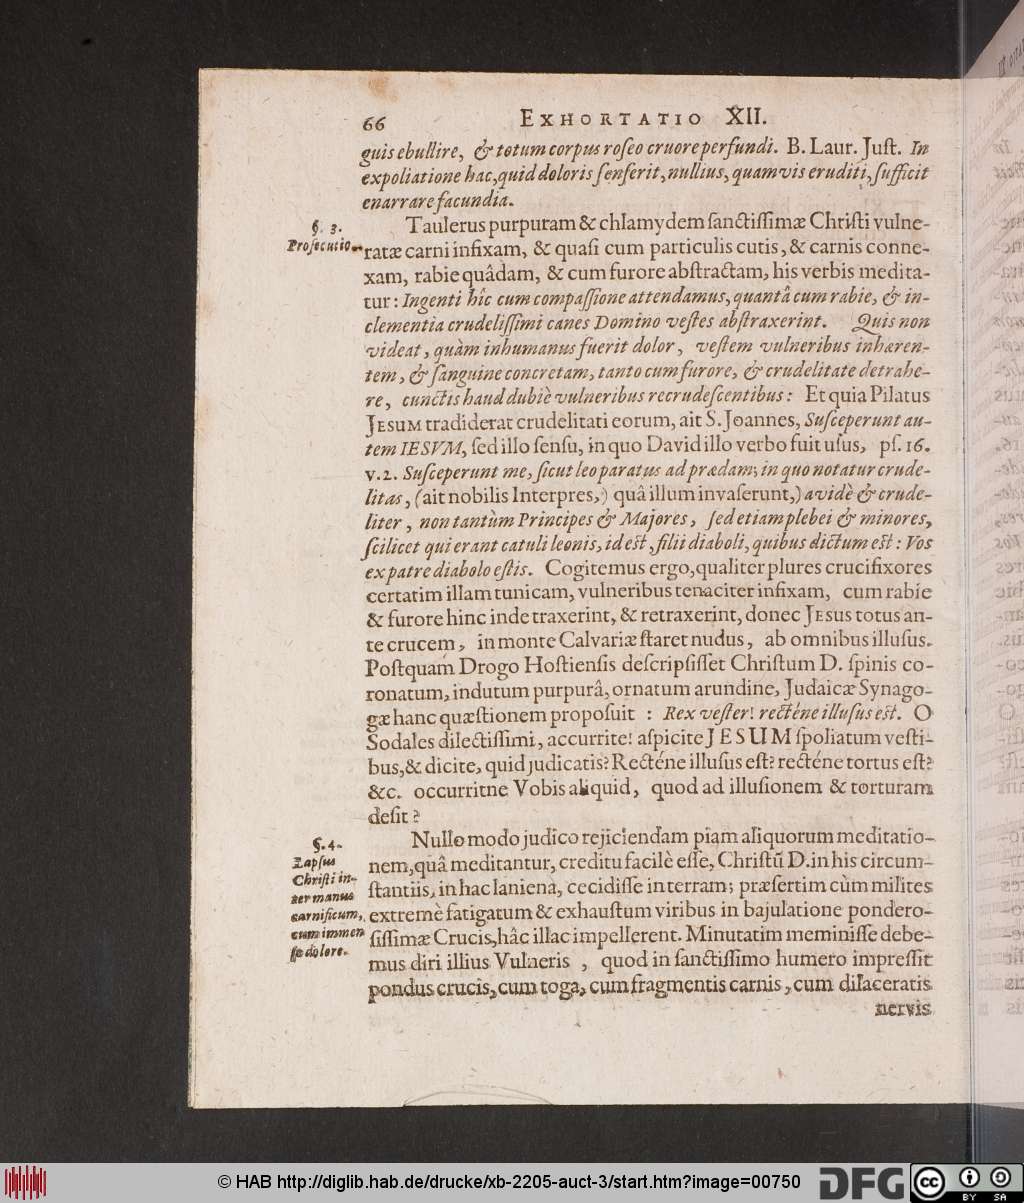 66 EXHORTATIO XII.
guis ebullire, & totum corpus roseo cruore perfundi. B. Laur. Just. In
expoliatione hac, quid doloris senserit, nullius, quamvis eruditi, sufficit
enarrare facundia.
§. 3.
Prosecutio.
Taulerus purpuram & chlamydem sanctissimæ Christi vulne-
ratæ carni infixam, & quasi cum particulis cutis, & carnis conne-
xam, rabie quâdam, & cum furore abstractam, his verbis medita-
tur: Ingenti hîc cum compassione attendamus, quantâ cum rabie, & in-
clementia crudelissimi canes Domino vestes abstraxerint. Quis non
videat, quàm inhumanus fuerit dolor, vestem vulneribus inhæren-
tem, & sanguine concretam, tanto cum furore, & crudelitate detrahe-
re, cunctis haud dubiè vulneribus recrudescentibus: Et quia Pilatus
JESUM tradiderat crudelitati eorum, ait S. Joannes, Susceperunt au-
tem IESVM, sed illo sensu, in quo David illo verbo fuit usus, ps. 16.
v. 2. Susceperunt me, sicut leo paratus ad prædam; in quo notatur crude-
litas, (ait nobilis Interpres,) quâ illum invaserunt,) avidè & crude-
liter, non tantùm Principes & Majores, sed etiam plebei & minores,
scilicet qui erant catuli leonis, id est, filii diaboli, quibus dictum est: Vos
ex patre diabolo estis. Cogitemus ergo, qualiter plures crucifixores
certatim illam tunicam, vulneribus tenaciter infixam, cum rabie
& furore hinc inde traxerint, & retraxerint, donec JESUS totus an-
te crucem, in monte Calvariæ staret nudus, ab omnibus illusus.
Postquam Drogo Hostiensis descripsisset Christum D. spinis co-
ronatum, indutum purpurâ, ornatum arundine, Judaicæ Synago-
gæ hanc quæstionem proposuit : Rex vester! recténe illusus est. O
Sodales dilectissimi, accurrite! aspicite JESUM spoliatum vesti-
bus, & dicite, quid judicatis? Recténe illusus est? recténe tortus est?
&c. occurritne Vobis aliquid, quod ad illusionem & torturam
desit?
§. 4.
Lapsus
Christi in-
ter manus
carnificum,
cum immen
so dolore.
Nullo modo judico rejiciendam piam aliquorum meditatio-
nem, quâ meditantur, creditu facilè esse, Christū D. in his circum-
stantiis, in hac laniena, cecidisse in terram; præsertim cùm milites
extremè fatigatum & exhaustum viribus in bajulatione pondero-
sissimæ Crucis, hâc illac impellerent. Minutatim meminisse debe-
mus diri illius Vulneris , quod in sanctissimo humero impressit
pondus crucis, cum toga, cum fragmentis carnis, cum dilaceratis
nervis
© HAB http://diglib.hab.de/drucke/xb-2205-auct-3/start.htm?image=00750
DFG
cc BY SA